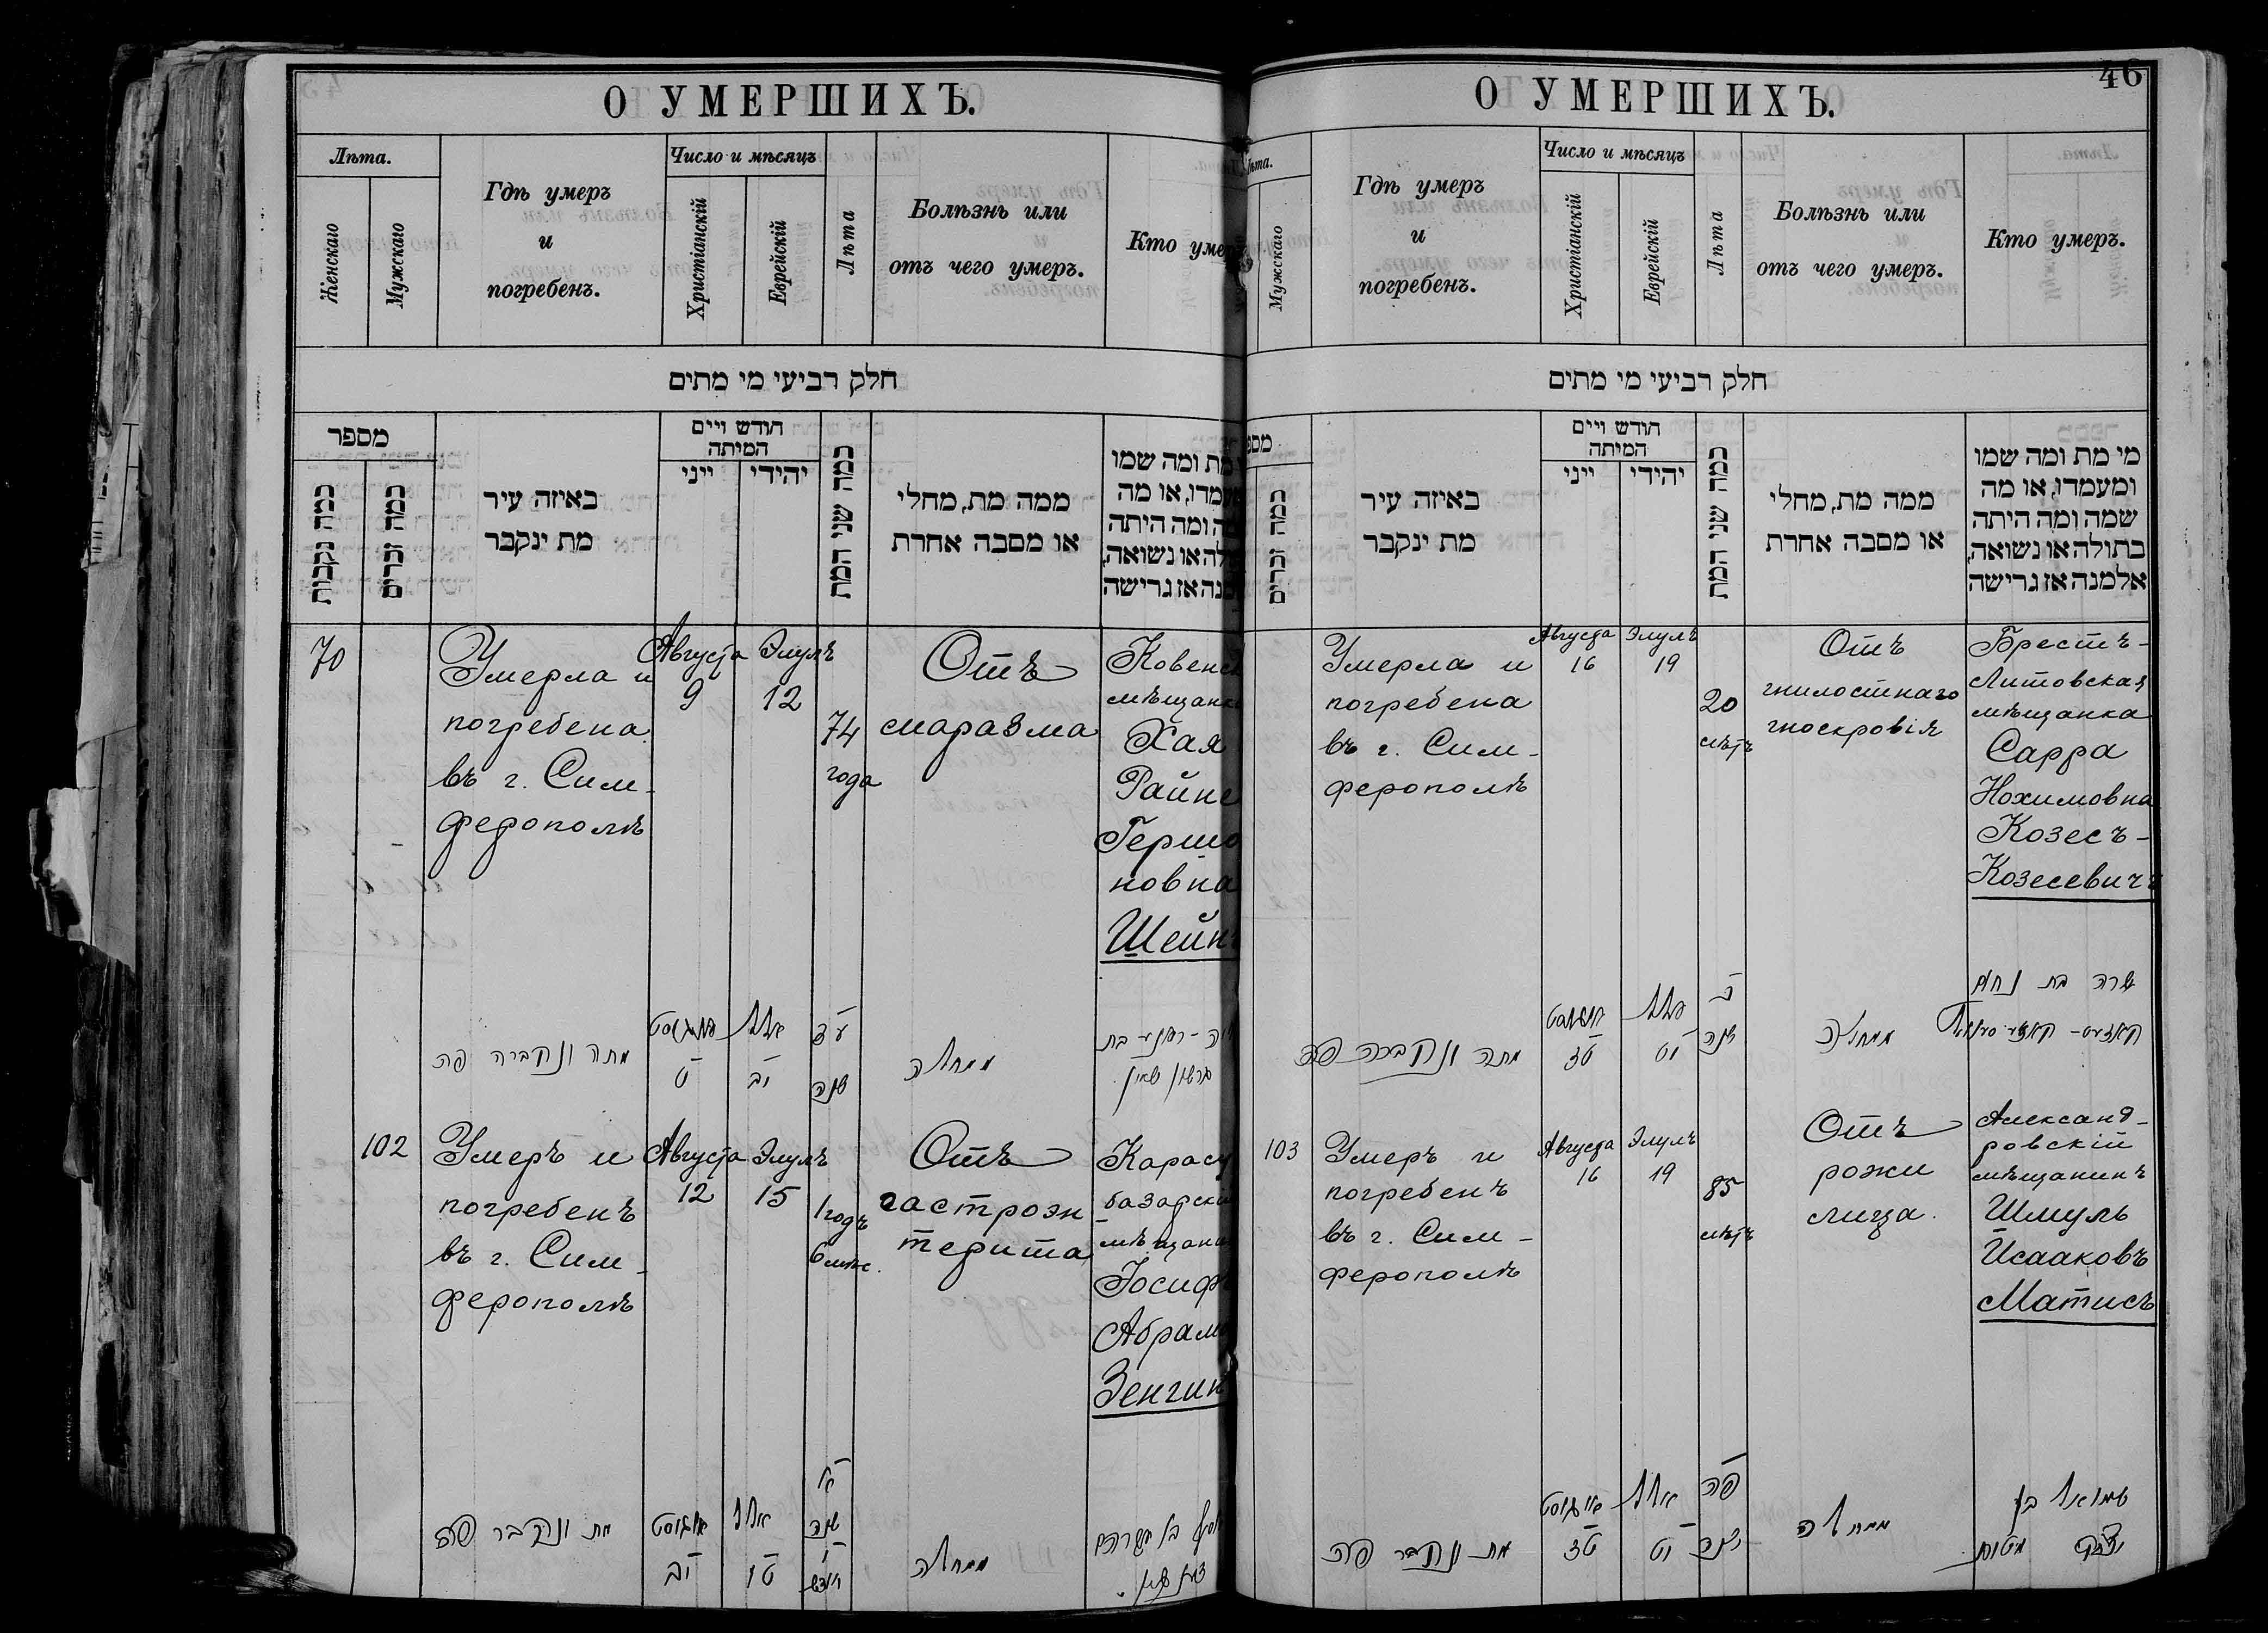 О УМЕРШИХЪ.
Лѣта.
Женскаго
Мужскаго
Гдѣ умеръ
и
погребенъ.
Число и мѣсяцъ
Христіанскій
Еврейскій
Лѣта
Болѣзнь или
отъ чего умеръ.
Кто умеръ
חלק רביעי מי מתים
מספר
כמה נקבות
כמה זכרים
באיזה עיר
מת ינקבר
חודש ויים
המיתה
ייני
יהידי
כמה שני המת
ממה מת, מחלי
או מסבה אחרת
מת ומה שמו
או מה
ומה היתה
או נשואה,
אז גרישה
70
Умерла и
погребена
въ г. Сим-
ферополѣ
Августа
9
Элулъ
12
74
года
Отъ
маразма
Ковенск
мѣщанка
Хая
Райне
Гершо
новна
Шейн
מתה ונקברה פה
אויגוסט
ט
אלול
יב
עד
שנה
ממחלה
בת
גרשון שאין
102
Умеръ и
погребенъ
въ г. Сим-
ферополѣ
Августа
12
Элулъ
15
1 годъ
6 мѣс.
Отъ
гастроэн
терита
Карасу
базарскій
мѣщанинъ
Іосифъ
Абрамо
Зенгин
מת ונקבר פה
אויגוסט
יב
אלול
טו
א
שנה
ו
חודש
ממחלה
יוסף בן אברהם
О УМЕРШИХЪ.
46
Лѣта.
Мужскаго
Гдѣ умеръ
и
погребенъ.
Число и мѣсяцъ
Христіанскій
Еврейскій
Лѣта
Болѣзнь или
отъ чего умеръ.
Кто умеръ.
חלק רביעי מי מתים
מספ
כמה זכרים
באיזה עיר
מת ינקבר
חודש ויים
המיתה
ייני
יהידי
כמה שני המת
ממה מת, מחלי
או מסבה אחרת
מי מת ומה שמו
ומעמדו, או מה
שמה ומה היתה
בתולה או נשואה,
אלמנה אז גרישה
Умерла и
погребена
въ г. Сим-
ферополѣ
Августа
16
Элулъ
19
20
лѣтъ
Отъ
гнилостнаго
гноекровія
Брестъ-
Литовская
мѣщанка
Сарра
Нохимовна
Козесъ-
Козесевичъ
מתה ונקברה פה
אויגוסט
טז
אלול
יט
כ
שנה
ממחלה
שרה בת נחום
103
Умеръ и
погребенъ
въ г. Сим-
ферополѣ
Августа
16
Элулъ
19
85
лѣтъ
Отъ
рожи
лица.
Александ-
ровскій
мѣщанинъ
Шмуль
Исааковъ
Матисъ
מת ונקבר פה
אויגוסט
טז
אלול
יט
פה
שנה
ממחלה
שמואל בן
יצחק מטוס